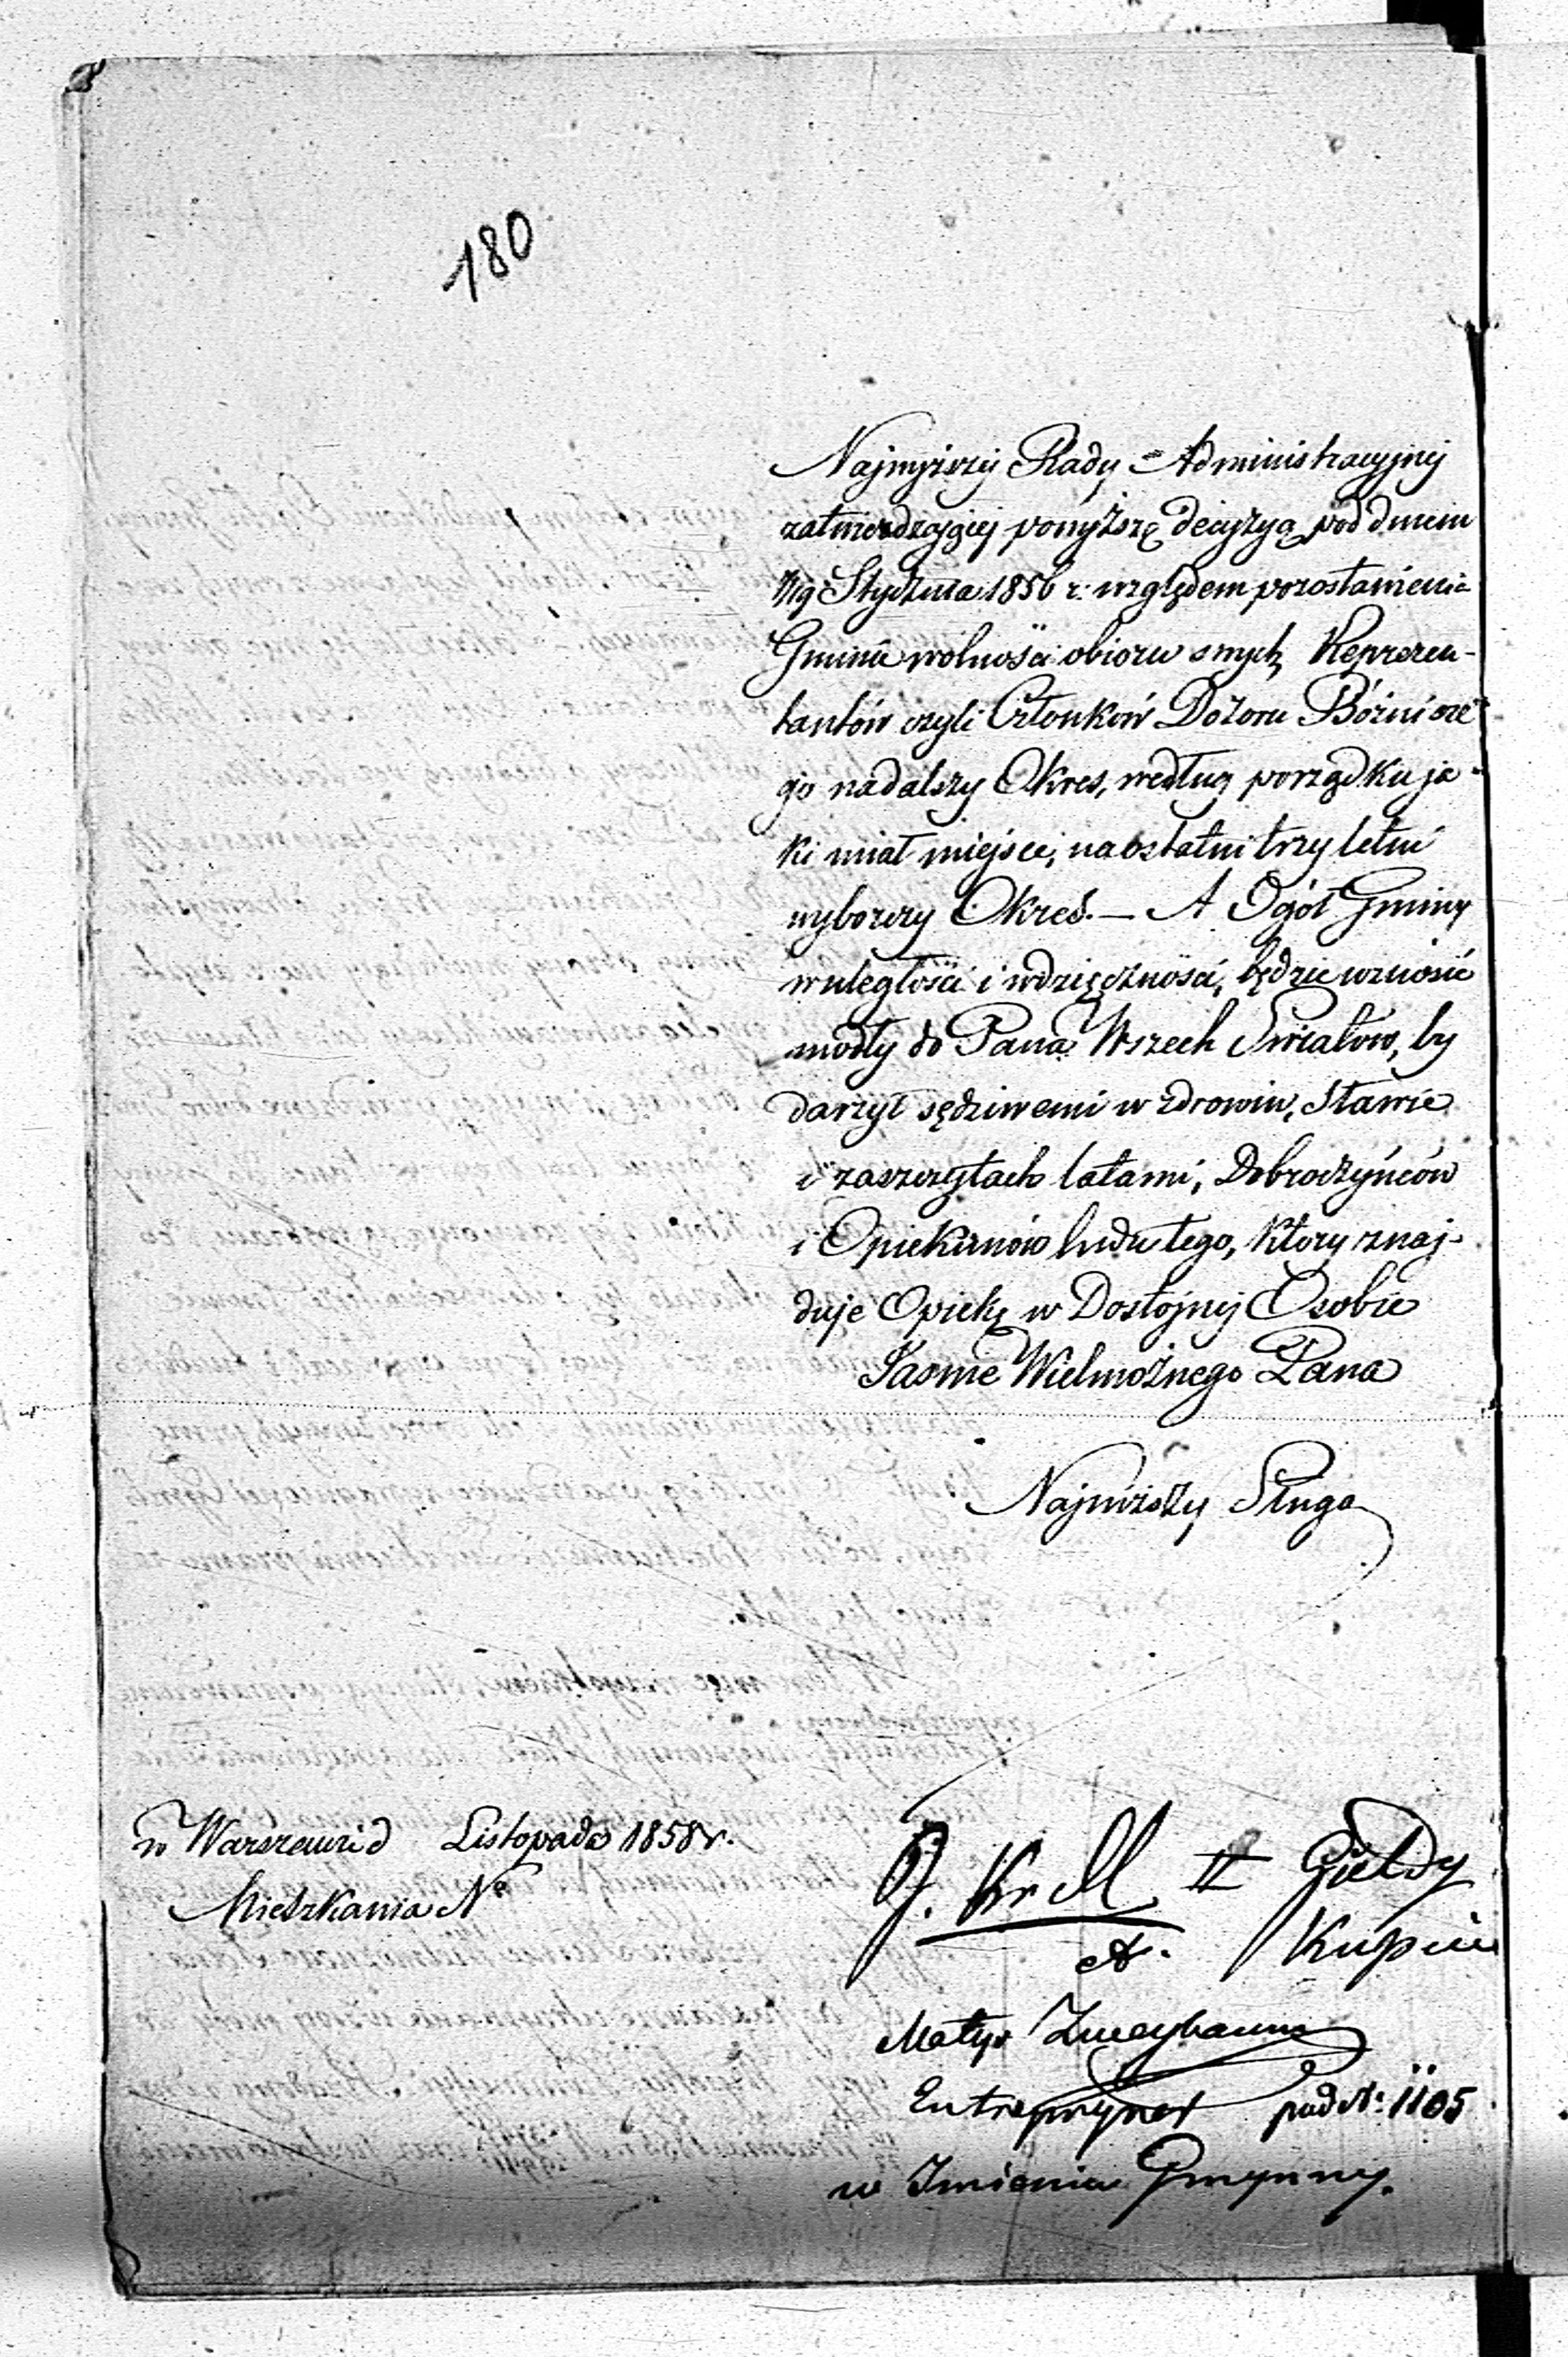 180
Najwyższej Rady Administracyjnej
zatwierdzającej powyższą decyzyą pod dniem
7/19 Stycznia 1856 r: względem pozostawienia
Gminie wolności obioru swych Reprezen-
tantów czyli Członków Dozoru Bóżnicze
go na dalszy Okres, według porządku ja-
ki miał miejsce, na ostatni trzy letni
wyborczy Okres. — A Ogół Gminy
w uległości i wdzięczności, będzie wznosić
modły do Pana Wszech Światów, by
darzył sędziwemi w zdrowiu, sławie
i zaszczytach latami, Dobroczyńców
i Opiekunów ludu tego, który znaj-
duje Opiekę w Dostojnej Osobie
Jaśnie Wielmożnego Pana
Najniższy Sługa
w Warszawie d Listopada 1858 r.
Mieszkania No
II Giełdy
Kupiec
Matys
Entrepryner pod No: 1105
w Imieniu Gmynny.